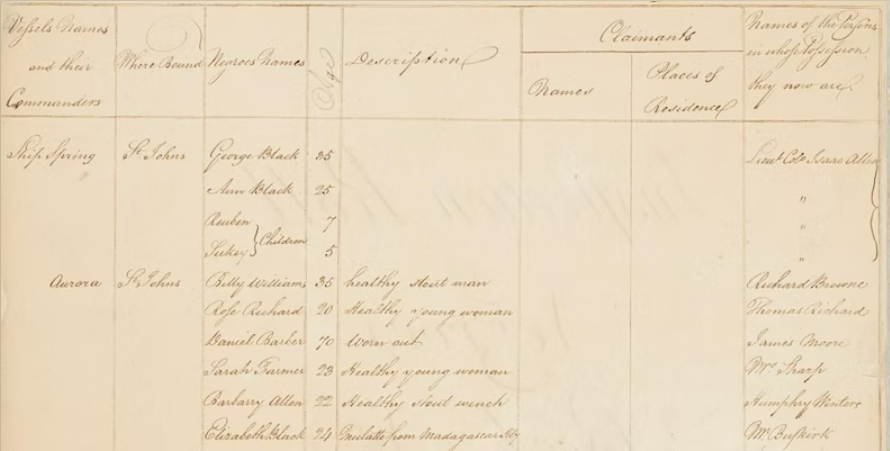 Vessels Names and their Commanders
Where Bound
Negroes Names
Age
Description
Claimants
Names
Places of Residence
Names of the Persons in whose Possession they now are.
Ship Spring St. Johns George Black 35 Lieut Colo Isaac Allen
Ann Black 25 "
Reuben 7 "
Sukey } Children 5 "
Aurora St. Johns Billy Williams 35 healthy stout man Richard Browne
Rose Richard 20 Healthy young woman Thomas Richard
Daniel Barber 70 Worn out James Moore
Sarah Farmer 23 Healthy young woman Mrs Sharp
Barbarry Allen 22 Healthy stout wench Humphry Winters
Elizabeth Black 24 Mulatto from Madagascar Mr. Buskirk